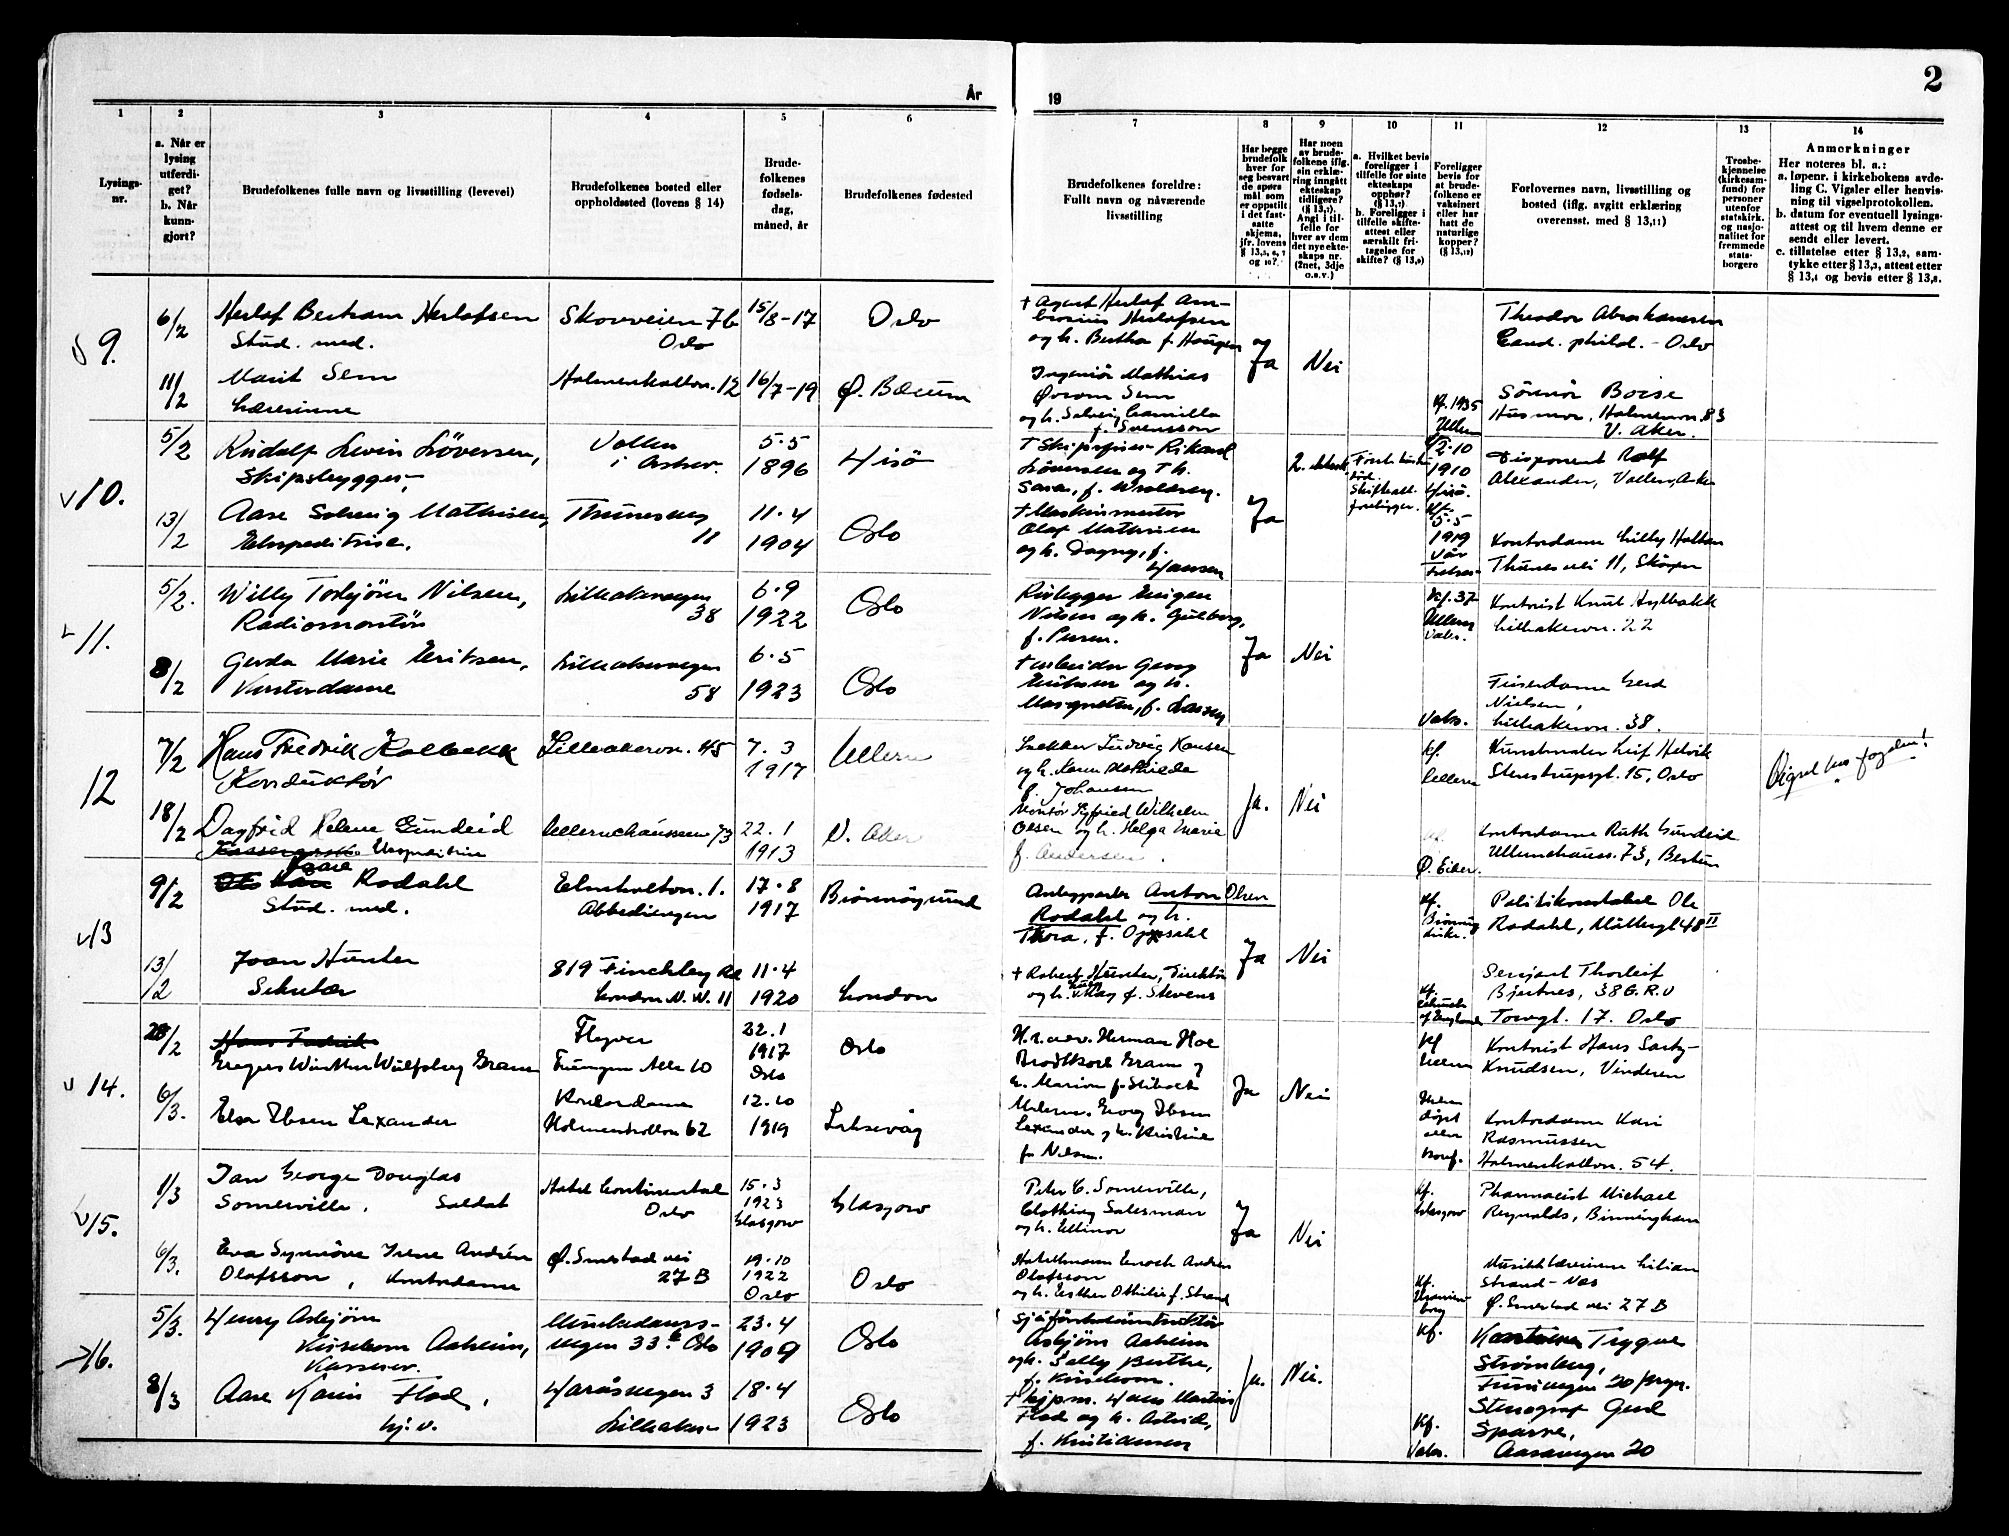 2
År
19
1
2
3
4
5
6
7
8
9
10
11
12
13
14
Lysings-
nr.
a. Når er
lysing
utferdi-
get?
b. Når
kunn-
gjort?
Brudefolkenes fulle navn og livsstilling (levevei)
Brudefolkenes bosted eller
oppholdssted (lovens § 14)
Brude-
folkenes
fødsels-
dag,
måned, år
Brudefolkenes fødested
Brudefolkenes foreldre:
Fullt navn og nåværende
livsstilling
Har begge
brudefolk
hver for
seg besvart
de spørs
mål som
er oppstilt
i det fast-
satte
skjema,
jfr. lovens
§ 13,5, 6, 7
og 10?
Har noen
av brude-
folkene iflg.
sin erklæ-
ring inngått
ekteskap
tidligere?
(§ 13,7).
Angi i til-
felle for
hver av dem
det nye ekte-
skaps nr.
(2net, 3dje
o.s.v.)
a. Hvilket bevis
foreligger i
tilfelle for siste
ekteskaps
opphør?
(§ 13,7)
b. Foreligger i
tilfelle skifte-
attest eller
særskilt fri-
tagelse for
skifte? (§ 13,9)
Foreligger
bevis for
at brude-
folkene er
vaksinert
eller har
hatt de
naturlige
kopper?
(§ 13,12)
Forlovernes navn, livsstilling og
bosted (iflg. avgitt erklæring
overensst. med § 13,11)
Trosbe-
kjennelse
(kirkesam-
fund) for
personer
utenfor
statskirk.
og nasjo-
nalitet for
fremmede
stats-
borgere
Anmerkninger
Her noteres bl. a.:
a. løpenr. i kirkebokens avde-
ling C. Vigsler eller henvis-
ning til vigselprotokollen.
b. datum for eventuell lysings-
attest og til hvem denne er
sendt eller levert.
c. tillatelse etter § 13,2, sam-
tykke etter § 13,3, attest etter
§ 13,4 og bevis etter § 13,8.
9.
6/2
Herlof Bertram Herlofsen
Stud. med.
Skovveien 7b
Oslo
15/8-17
Oslo
+ Agent Herlof Am-
brosius Herlofsen
og h. Bertha f. Haugen
Ja
Nei
Theodor Abrahamsen
Cand. philol. - Oslo
11/2
Marit Sem
Lærerinne
Holmenkollvn. 12
16/7-19
Ø. Bærum
Ingeniør Mathias
Sem
og h. Solveig Camilla
f. Svensson
Kf. 1935
Ullern
Boise
Husmor, Holmenvn. 83
V. Aker.
10.
5/2
Rudolf Levin Löversen,
Skipsbygger,
Vollen
i Asker.
5.5
1896
Hisö
+ Skipsfører Rikard
Löversen og h.
Sara, f.
2. ektesk.
Skifteatt.
foreligger.
1910
Hisö.
Disponent Rolf
Alexander, Vollen, Asker
13/2
Aase Solveig Mathisen,
Ekspeditrise.
Thunesvei
11
11.4
1904
Oslo
+ Maskinmester
Olaf Mathisen
og h. Dagny, f.
Hansen
Ja
Kf.
5.5
1919
Vår
Frelser
Kontordame Lilly Holten
Thunes vei 11, Sköyen
11.
5/2.
Willy Torbjörn Nilsen,
Radiomontör
Lilleakervegen
38
6.9
1922
Oslo
Rörlegger Eugen
Nilsen og h. Gulborg,
f.
Kf. 37
Ullern
Vaks.
Kontorist Knut Hylbakk
Lilleakervn. 22
8/2
Gerda Marie Eriksen,
Kontordame
Lilleakervegen
58
6.5
1923
Oslo
+ arbeider Georg
Eriksen og h.
Margrethe, f. Larsen
Ja
Nei
Vaks.
Frisørdame Gerd
Nielsen,
Lilleakervn. 38.
12
7/2
Hans Fredrik Holbekk
Konduktör
Lilleakervn. 45
7.3
1917
Ullern
Ludvig Hansen
og h. Karen Mathilde
f. Johansen
Kf.
Ullern
Kunstmaler Leif Helvik
Stenstrupsgt. 15, Oslo
Vigsel hos fogden!
18/2
Dagfrid Helene Gundeid
Ekspeditrise
Ullernchausseen 73
22.1
1913
V. Aker
Montør Sigfried Wilhelm
Olsen og h. Helga Marie
f. Andersen.
Ja.
Nei
Ø. Eiker.
Kontordame Ruth Gundeid
Ullernchauss. 73, Bestum
13
9/2
Kaare Rodahl
Stud. med.
Elmholtvn. 1.
Abbediengen
17.8
1917
Brönnöysund
Anton Olsen
Rodahl og h.
Thora, f. Oppsahl
Kf.
Politikonstabel Ole
Rodahl, Möllergt 48 II
13/2
Joan Hunter
Sekretær
819 Finchley Rd
London N.W. 11
11.4
1920
London
+ Robert Hunter, Direktör
og h. May f. Stevens
Ja
Nei
Kf.
Church
of England
Sersjant Thorleif
Bjertnes, 38 G.R.U
Torvgt. 17. Oslo
14.
28/2
Hans Fredrik
Gregers Winther Wulfsberg Gram
Flyver
Furuyen Alle 10
22.1
1917
Oslo
Oslo
H.r.adv. Herman Hoe
Brodtkorb Gram og
h. Marion f. Stibolt
Kf
Ullern
Kontorist Hans Sarby-
Knudsen, Vinderen
6/3.
Elsa Ibsen Lexander
Kontordame
Holmenkollvn 62
12.10
1919
Laksevåg
Georg Ibsen
Lexander og h. Kristine
f. Nilsen.
Ja
Nei
döpt
eller
konf.
Kontordame Kari
Rasmussen
Holmenkollvn. 54.
15.
1/3
Ian George Douglas
Somerville, Soldat
Hotel Continental
Oslo
15.3
1923
Glasgow
Glasgow
Peter C. Somerville,
Clothing Salesman
og h. Ellinor
Ja
Nei
Kf.
Glasgow
Pharmacist Michael
Reynolds, Birmingham
6/3.
Eva Synnöve Irene Andrén
Olafsson, Kontordame
Ø. Smestad vei
27 B
19.10
1922
Oslo
Oslo
Enoch Andrén
Olofsson
og h. Esther Othilie f. Strand
Kf.
Uranien-
borg
Musikklærerinne Lilian
Strand-Næs
Ø. Smestad vei 27 B
16.
5/3.
Henry Asbjörn
Kirsebom Aaheim,
Kasserer.
Munkedams-
vegen 33 b Oslo
23.4
1909
Oslo
Asbjörn Aaheim
og h. Selly Berthe,
f. Kirsebom.
Ja.
Nei.
Kf.
Trygve
Strömberg,
8/3
Aase Karin Flod,
hj.v.
Haråsvegen 3
Lilleaker
18.4
1923
Oslo
+ skjpm. Hans Martin
Flod og h. Astrid,
f. Kristiansen
Kf.
Vaks.
Stenograf Gerd
Sparre,
Aasavegen 20